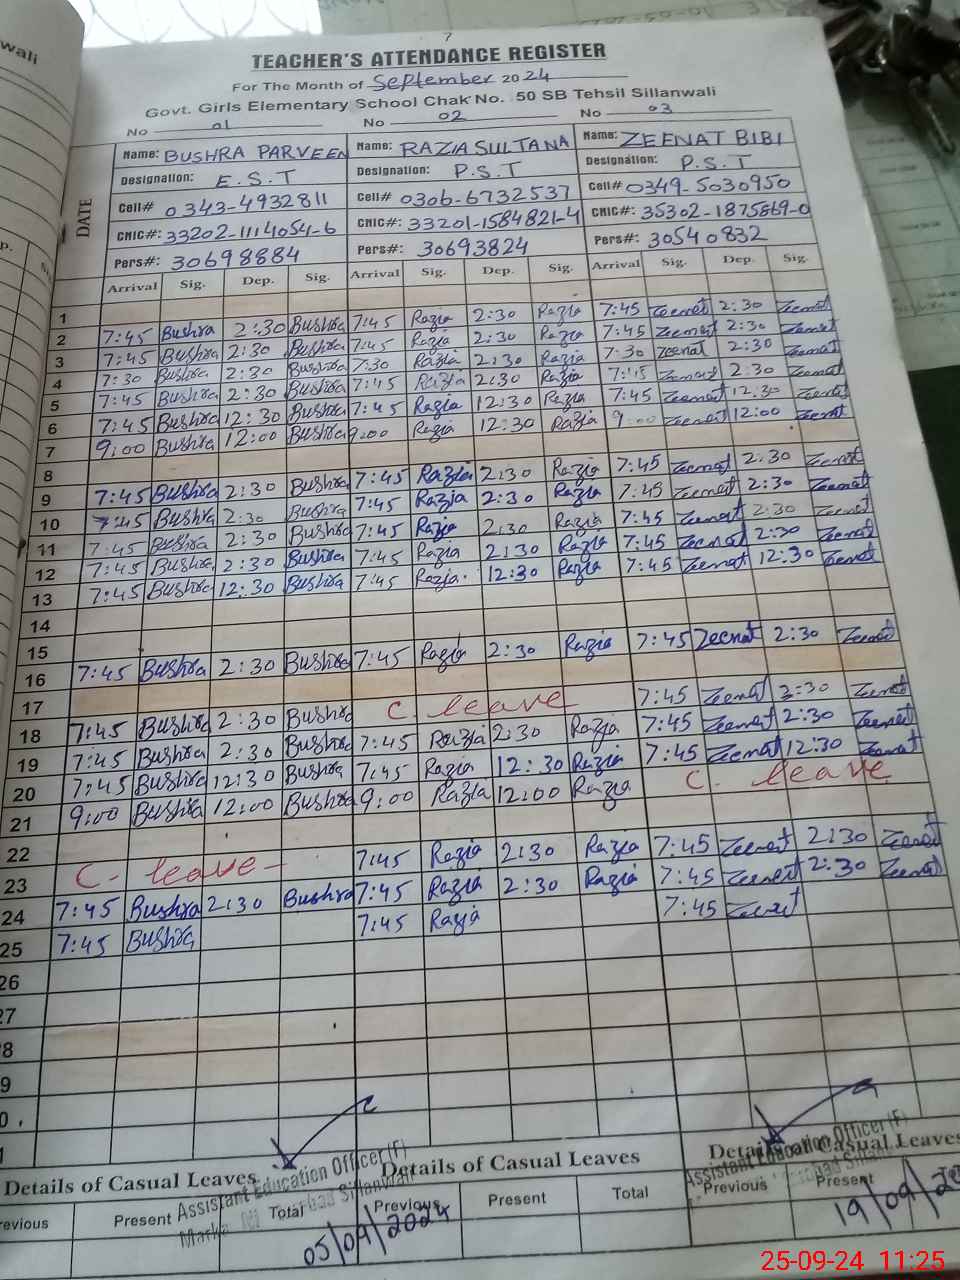 7
TEACHER'S ATTENDANCE REGISTER
For The Month of September 2024
Govt. Girls Elementary School Chak No. 50 SB Tehsil Sillanwali
No 01 No 02 No 03
DATE
Name: BUSHRA PARVEEN Name: RAZIA SULTANA Name: ZEENAT BIBI
Designation: E.S.T Designation: P.S.T Designation: P.S.T
Cell# 0343-4932811 Cell# 0306-6732537 Cell# 0349-5030950
CNIC#: 33202-1114054-6 CNIC#: 33201-1584821-4 CNIC#: 35302-1875869-0
Pers#: 30698884 Pers#: 30693824 Pers#: 30540832
Arrival Sig. Dep. Sig. Arrival Sig. Dep. Sig. Arrival Sig. Dep. Sig.
1
2 7:45 Bushra 2:30 Bushra 7:45 Razia 2:30 Razia 7:45 Zeenat 2:30 Zeenat
3 7:45 Bushra 2:30 Bushra 7:45 Razia 2:30 Razia 7:45 Zeenat 2:30 Zeenat
4 7:30 Bushra 2:30 Bushra 7:30 Razia 2:30 Razia 7:30 Zeenat 2:30 Zeenat
5 7:45 Bushra 2:30 Bushra 7:45 Razia 2:30 Razia 7:45 Zeenat 2:30 Zeenat
6 7:45 Bushra 12:30 Bushra 7:45 Razia 12:30 Razia 7:45 Zeenat 12:30 Zeenat
7 9:00 Bushra 12:00 Bushra 9:00 Razia 12:30 Razia 9:00 Zeenat 12:00 Zeenat
8
9 7:45 Bushra 2:30 Bushra 7:45 Razia 2:30 Razia 7:45 Zeenat 2:30 Zeenat
10 7:45 Bushra 2:30 Bushra 7:45 Razia 2:30 Razia 7:45 Zeenat 2:30 Zeenat
11 7:45 Bushra 2:30 Bushra 7:45 Razia 2:30 Razia 7:45 Zeenat 2:30 Zeenat
12 7:45 Bushra 2:30 Bushra 7:45 Razia 2:30 Razia 7:45 Zeenat 2:30 Zeenat
13 7:45 Bushra 12:30 Bushra 7:45 Razia 12:30 Razia 7:45 Zeenat 12:30 Zeenat
14
15
16 7:45 Bushra 2:30 Bushra 7:45 Razia 2:30 Razia 7:45 Zeenat 2:30 Zeenat
17
18 7:45 Bushra 2:30 Bushra C. leave 7:45 Zeenat 2:30 Zeenat
19 7:45 Bushra 2:30 Bushra 7:45 Razia 2:30 Razia 7:45 Zeenat 2:30 Zeenat
20 7:45 Bushra 12:30 Bushra 7:45 Razia 12:30 Razia 7:45 Zeenat 12:30 Zeenat
21 9:00 Bushra 12:00 Bushra 9:00 Razia 12:00 Razia C. leave
22
23 C. leave 7:45 Razia 2:30 Razia 7:45 Zeenat 2:30 Zeenat
24 7:45 Bushra 2:30 Bushra 7:45 Razia 2:30 Razia 7:45 Zeenat 2:30 Zeenat
25 7:45 Bushra 7:45 Razia 7:45 Zeenat
26
27
Details of Casual Leaves Details of Casual Leaves Details of Casual Leaves
Assistant Education Officer (F) Assistant Education Officer (F)
Sillanwali
Present Total Previous Present Total Previous Present
05/09/2024 19/09/20
25-09-24 11:25